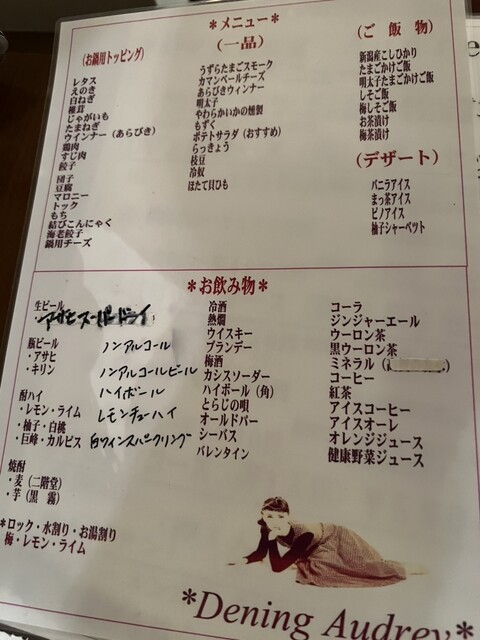 ＊メニュー＊
(お鍋用トッピング)
レタス
えのき
白ねぎ
椎茸
じゃがいも
たまねぎ
ウインナー（あらびき）
鶏肉
すじ肉
餃子
団子
豆腐
マロニー
トック
もち
結びこんにゃく
海老餃子
鍋用チーズ
(一品)
うずらたまごスモーク
カマンベールチーズ
あらびきウィンナー
明太子
やわらかいかの燻製
もずく
ポテトサラダ（おすすめ）
らっきょう
枝豆
冷奴
ほたて貝ひも
(ご飯物)
新潟産こしひかり
たまごかけご飯
明太子たまごかけご飯
しそご飯
梅しそご飯
お茶漬け
梅茶漬け
(デザート)
バニラアイス
まっ茶アイス
ピノアイス
柚子シャーベット
＊お飲み物＊
生ビール
・アサヒスーパードライ
瓶ビール
・アサヒ
・キリン
酎ハイ
・レモン・ライム
・柚子・白桃
・巨峰・カルピス
焼酎
・麦（二階堂）
・芋（黒霧）
＊ロック・水割り・お湯割り
梅・レモン・ライム
ノンアルコール
ノンアルコールビール
ハイボール
レモンチューハイ
白ワインスパークリング
冷酒
熱燗
ウイスキー
ブランデー
梅酒
カシスソーダー
ハイボール（角）
とらじの唄
オールドパー
シーバス
バレンタイン
コーラ
ジンジャーエール
ウーロン茶
黒ウーロン茶
ミネラル（
コーヒー
紅茶
アイスコーヒー
アイスオーレ
オレンジジュース
健康野菜ジュース
＊Dening Audrey＊